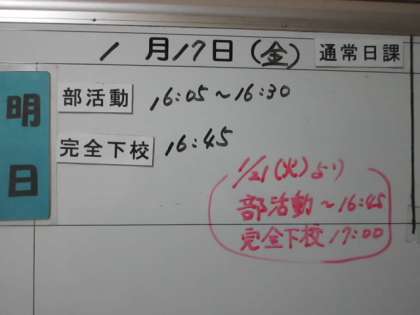 1月17日(金) 通常日課
明日
部活動 16:05~16:30
完全下校 16:45
1/21(火)より
部活動~16:45
完全下校17:00